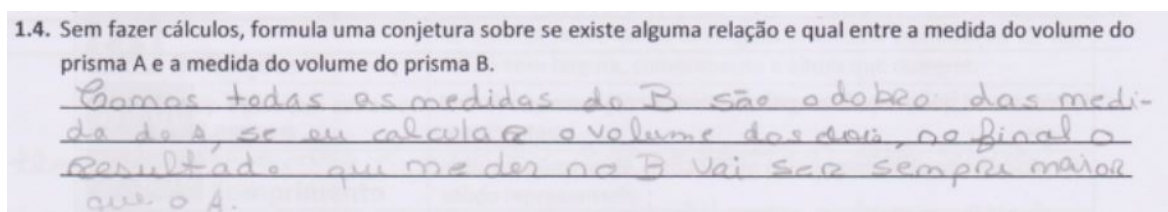 1.4. Sem fazer cálculos, formula uma conjetura sobre se existe alguma relação e qual entre a medida do volume do
prisma A e a medida do volume do prisma B.
Comos todas as medidas do B são o dobro das medi-
da do A, se eu calcular o volume dos dois, no final o
resultado que me der no B vai ser sempre maior
que o A.